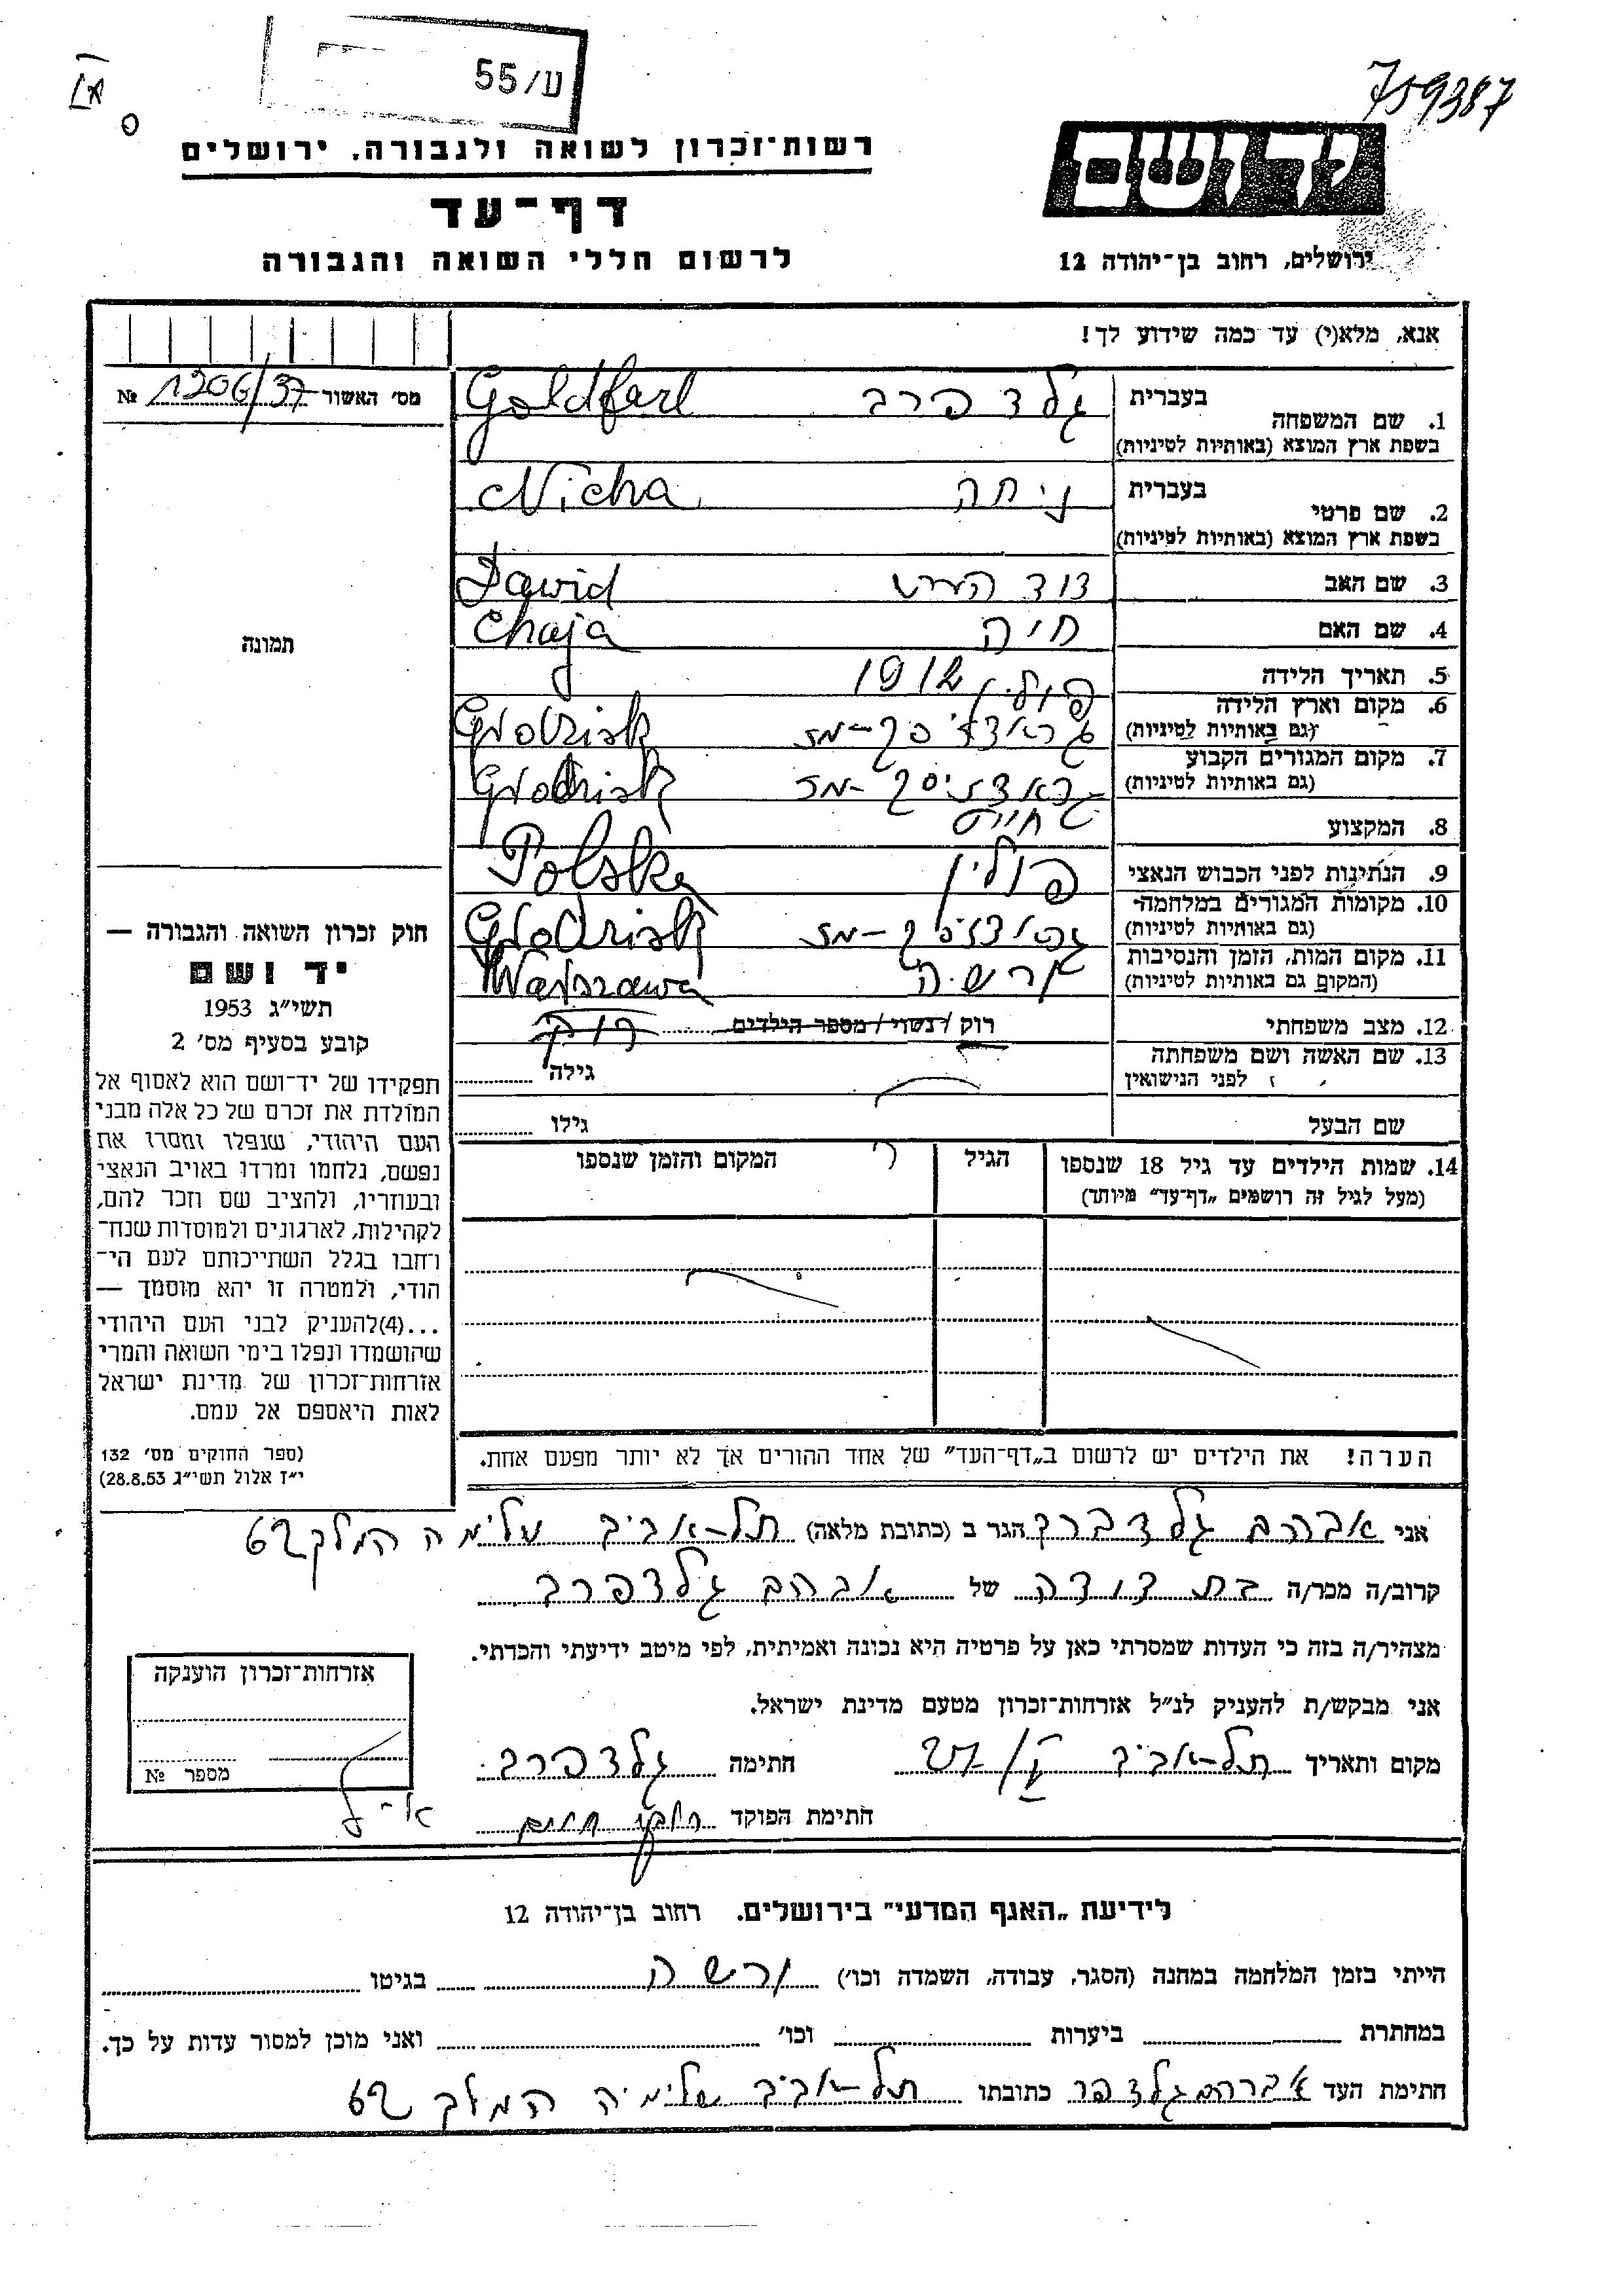 759387
ע/55
יד ושם
רשות־זכרון לשואה ולגבורה, ירושלים
דף־עד
לרשום חללי השואה והגבורה
ירושלים, רחוב בן־יהודה 12
אנא, מלא(י) עד כמה שידוע לך!
מס׳ האשור 1306/37 №
1. שם המשפחה בעברית גלדפרב Goldfarb
בשפת ארץ המוצא (באותיות לטיניות)
2. שם פרטי בעברית ניחה Nicha
בשפת ארץ המוצא (באותיות לטיניות)
3. שם האב דוד הערש Dawid
4. שם האם חיה Chaja
5. תאריך הלידה 1912
6. מקום וארץ הלידה פולין
(גם באותיות לטיניות) גראדזיסק-מז Grodzisk
7. מקום המגורים הקבוע
(גם באותיות לטיניות) גראדזיסק-מז Grodzisk
8. המקצוע
9. הנתינות לפני הכבוש הנאצי פולין Polska
10. מקומות המגורים במלחמה
(גם באותיות לטיניות) גראדזיסק-מז Grodzisk
11. מקום המות, הזמן והנסיבות
(המקום גם באותיות לטיניות) ורשה Warszawa
12. מצב משפחתי רוק / נשוי / מספר הילדים רוק
13. שם האשה ושם משפחתה
לפני הנישואין גילה
שם הבעל גילו
14. שמות הילדים עד גיל 18 שנספו הגיל המקום והזמן שנספו
(מעל לגיל זה רושמים „דף־עד” מיוחד)
הערה! את הילדים יש לרשום ב„דף־העד” של אחד ההורים אך לא יותר מפעם אחת.
תמונה
חוק זכרון השואה והגבורה —
יד ושם
תשי״ג 1953
קובע בסעיף מס׳ 2
תפקידו של יד־ושם הוא לאסוף אל
המולדת את זכרם של כל אלה מבני
העם היהודי, שנפלו ומסרו את
נפשם, נלחמו ומרדו באויב הנאצי
ובעוזריו, ולהציב שם וזכר להם,
לקהילות, לארגונים ולמוסדות שנח־
רחבו בגלל השתייכותם לעם הי־
הודי, ולמטרה זו יהא מוסמך —
...(4)להעניק לבני העם היהודי
שהושמדו ונפלו בימי השואה והמרי
אזרחות־זכרון של מדינת ישראל
לאות היאספם אל עמם.
(ספר החוקים מס׳ 132
י״ז אלול תשי״ג 28.8.53)
אני אברהם גלדפרב הגר ב (כתובת מלאה) תל-אביב שלימה המלך 62
קרוב/ה מכר/ה בת דודה של אברהם גלדפרב
מצהיר/ה בזה כי העדות שמסרתי כאן על פרטיה היא נכונה ואמיתית, לפי מיטב ידיעתי והכרתי.
אני מבקש/ת להעניק לנ״ל אזרחות־זכרון מטעם מדינת ישראל.
מקום ותאריך תל-אביב חתימה גלדפרב
חתימת הפוקד
אזרחות־זכרון הוענקה
מספר №
לידיעת „האגף המדעי” בירושלים. רחוב בן־יהודה 12
הייתי בזמן המלחמה במחנה (הסגר, עבודה, השמדה וכו׳) ורשה בגיטו
במחתרת ביערות וכו׳ ואני מוכן למסור עדות על כך.
חתימת העד אברהם גלדפר כתובתו תל-אביב שלימיה המלך 62